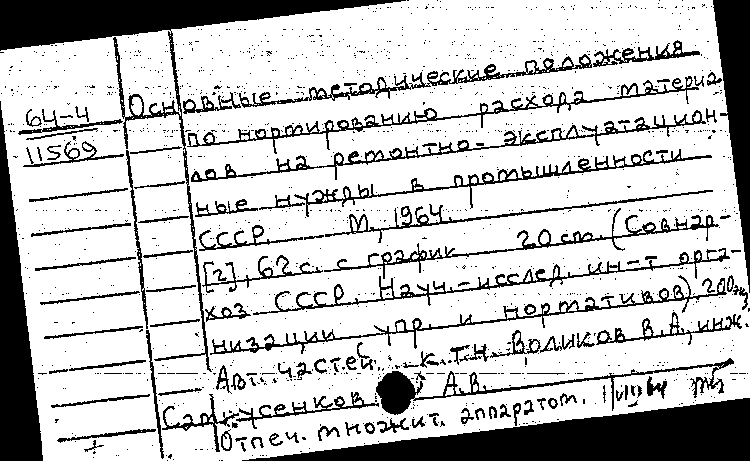 64-4
11569
Основные методические положения
по нормированию расхода материа
лов на ремонтно-эксплуатацион-
ные нужды в промышленности
СССР. М., 1964.
[2], 62 с. с график. 20 см. (Совнар-
хоз СССР. Науч.-исслед. ин-т орга-
низации упр. и нормативов). 200 экз.
Авт. частей: к.т.н. Воликов В.А., инж.
А.В.
Отпеч. множит. аппаратом.